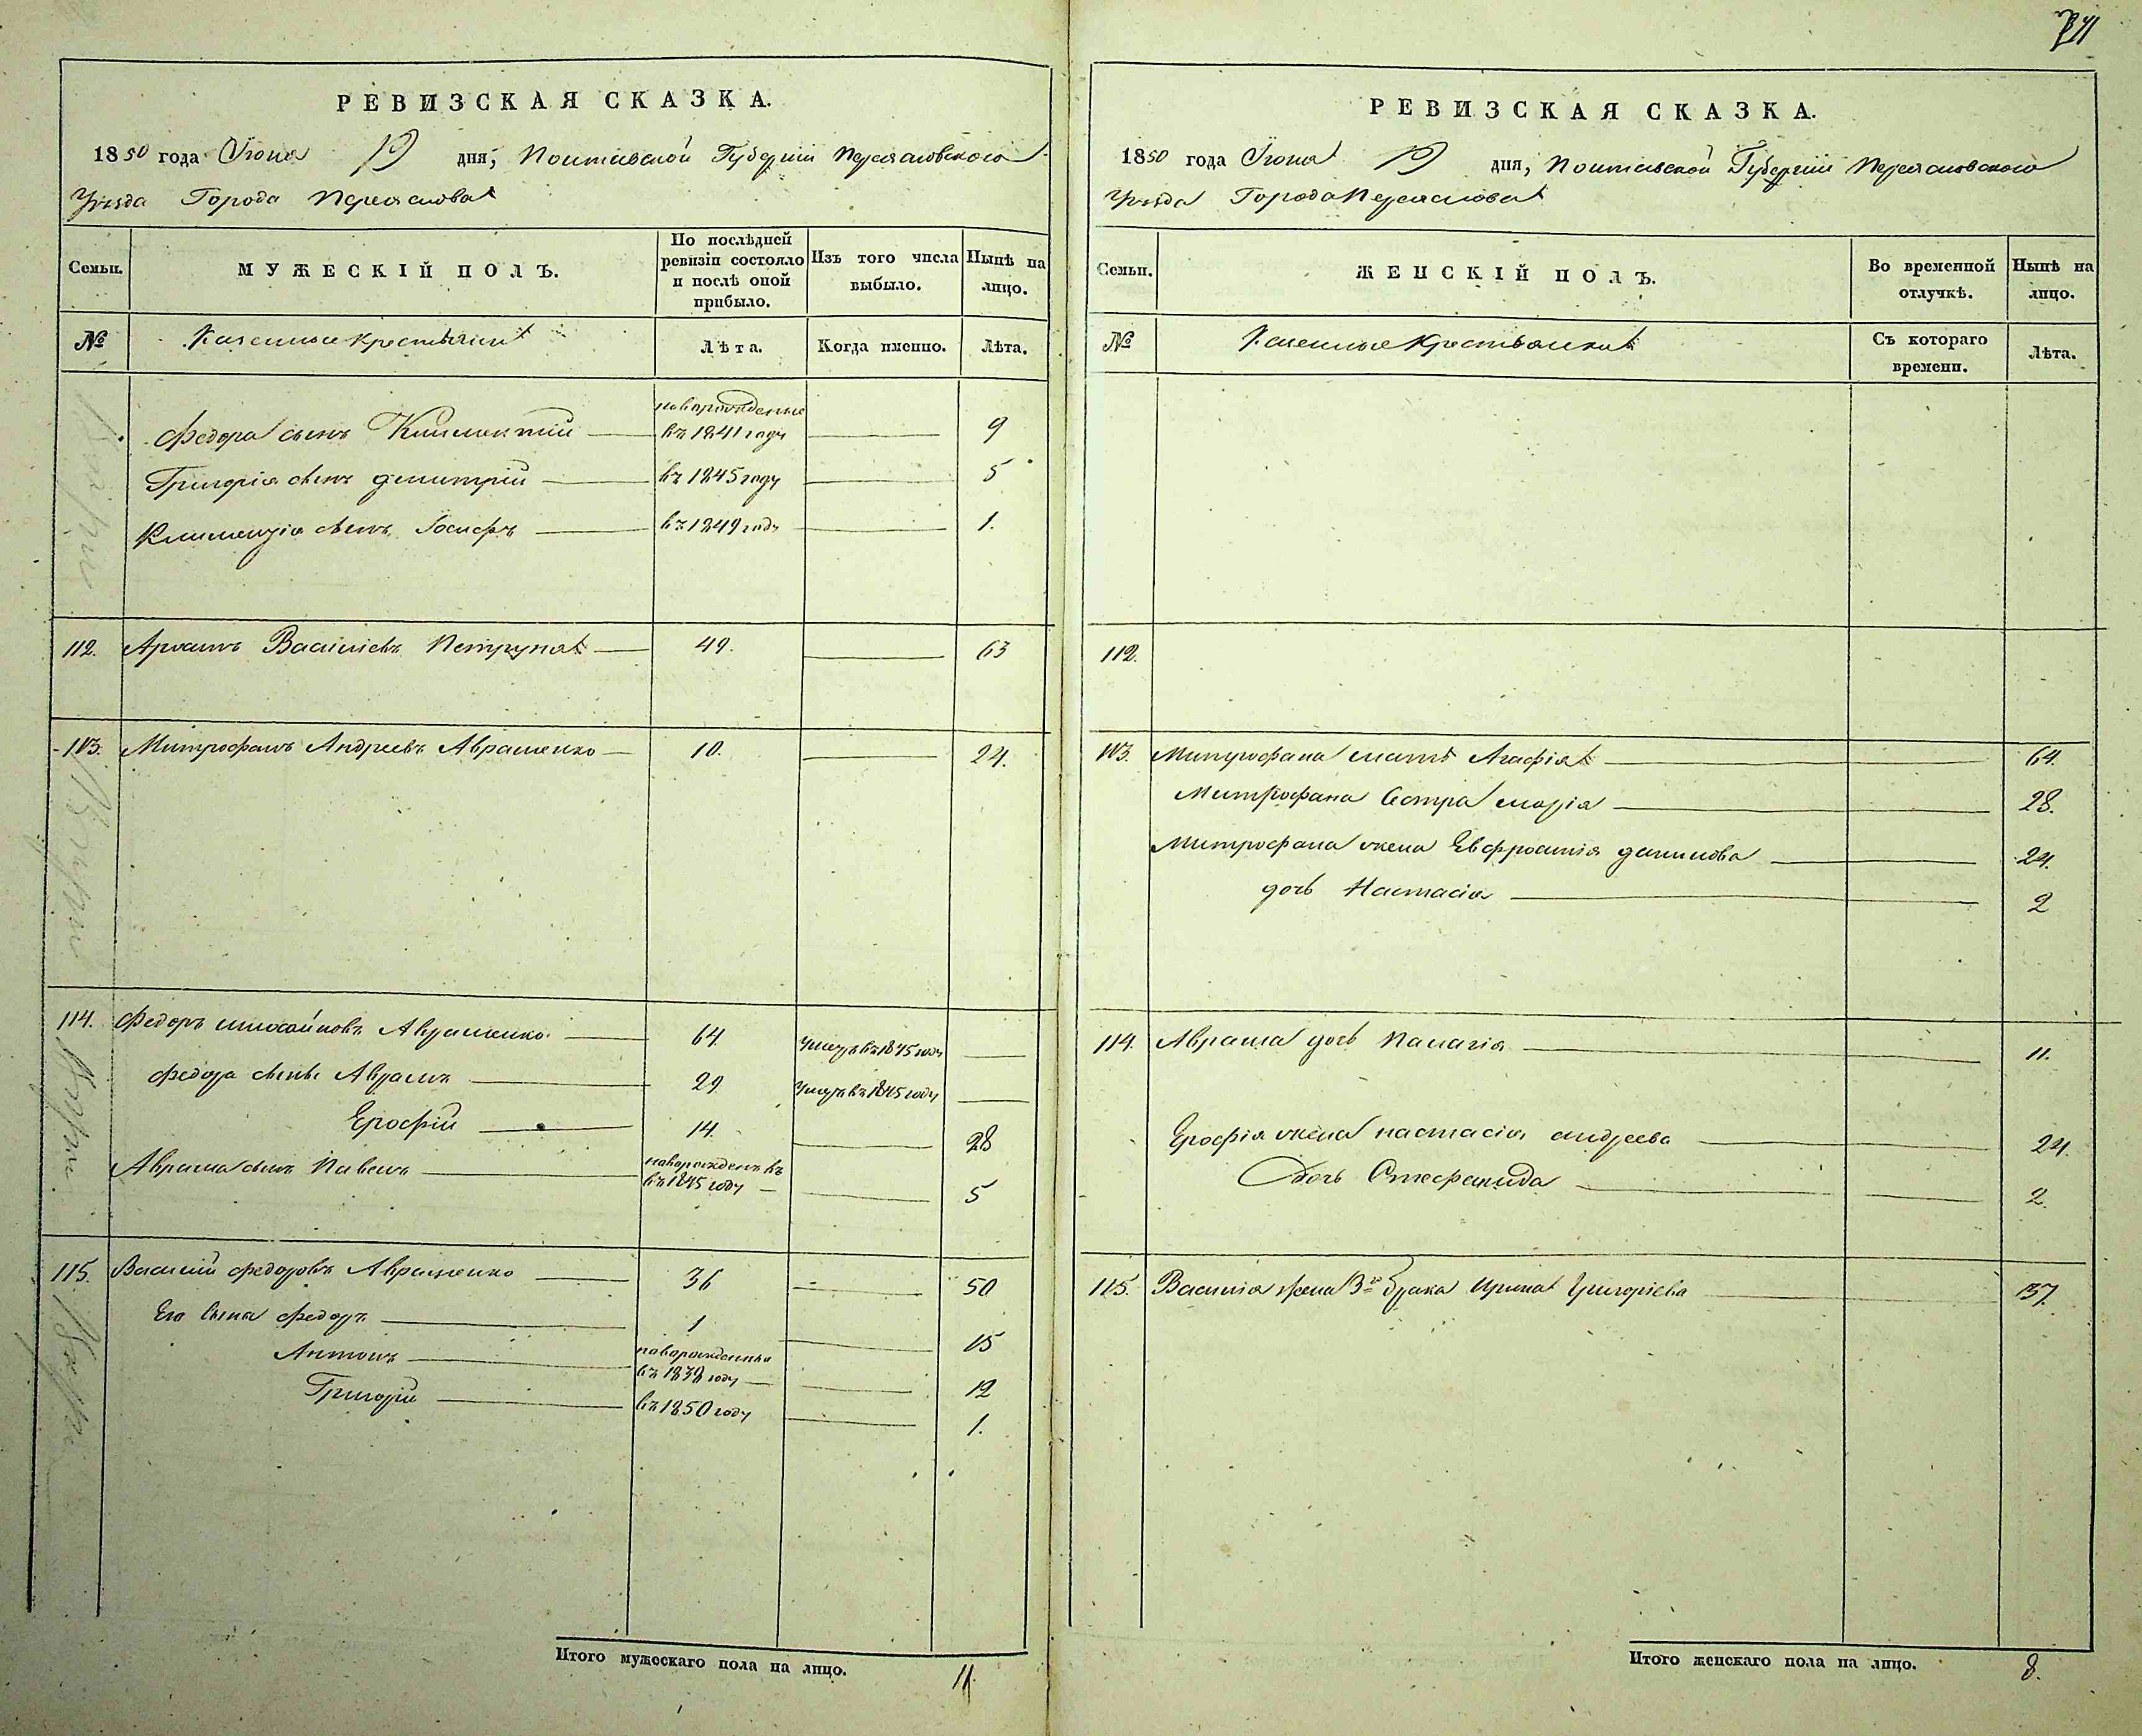 РЕВИЗСКАЯ СКАЗКА.
1850 года Іюня 19 дня, Полтавской Губерніи Переяславского
Уѣзда Города Переяслова
Семьи.
МУЖЕСКІЙ ПОЛЪ.
По послѣдней ревизіи состояло и послѣ оной прибыло.
Изъ того числа выбыло.
Нынѣ на лицо.
№
Казенные крестьяни
Лѣта.
Когда именно.
Лѣта.
Федора сынъ Климентій новорожденные въ 1841 году 9
Григорія сынъ Димитрій въ 1845 году 5
Климентія сынъ Іосифъ въ 1849 году 1.
112. Василіевъ Петруня 49. 63
113. Митрофанъ Андреевъ Авраменко 10. 24.
114. Федоръ Авраменко. 64 умеръ въ 1845 году
Федора сынъ Аврамъ 29 умеръ въ 1845 году
Ерофій 14. 28
Аврама сынъ Павелъ новорожденъ въ
въ 1845 году 5
115. Василій Федоровъ Авраменко 36 50
Его сыны Федоръ 1 15
Антонъ новорожденны въ 1838 году 12
Григорій въ 1850 году 1.
Итого мужескаго пола на лицо. 11.
РЕВИЗСКАЯ СКАЗКА.
1850 года Іюня 19 дня, Полтавской Губерніи Переяславского
Уѣзда Города Переяслова
Семьи.
ЖЕНСКІЙ ПОЛЪ.
Во временной отлучкѣ.
Нынѣ на лицо.
№
Казенные крестьянки
Съ котораго времени.
Лѣта.
112.
113. Митрофана мать Агафія 64.
Митрофана сестра марія 28.
Митрофана жена Евфросинія данилова 24.
дочь Настасія 2
114. Аврама дочь Палагія 11.
Ерофія жена настасія андреева 24.
Дочь Стефанида 2.
115. Василія жена 3го брака Ирина Григоріева 37.
Итого женскаго пола на лицо. 8.